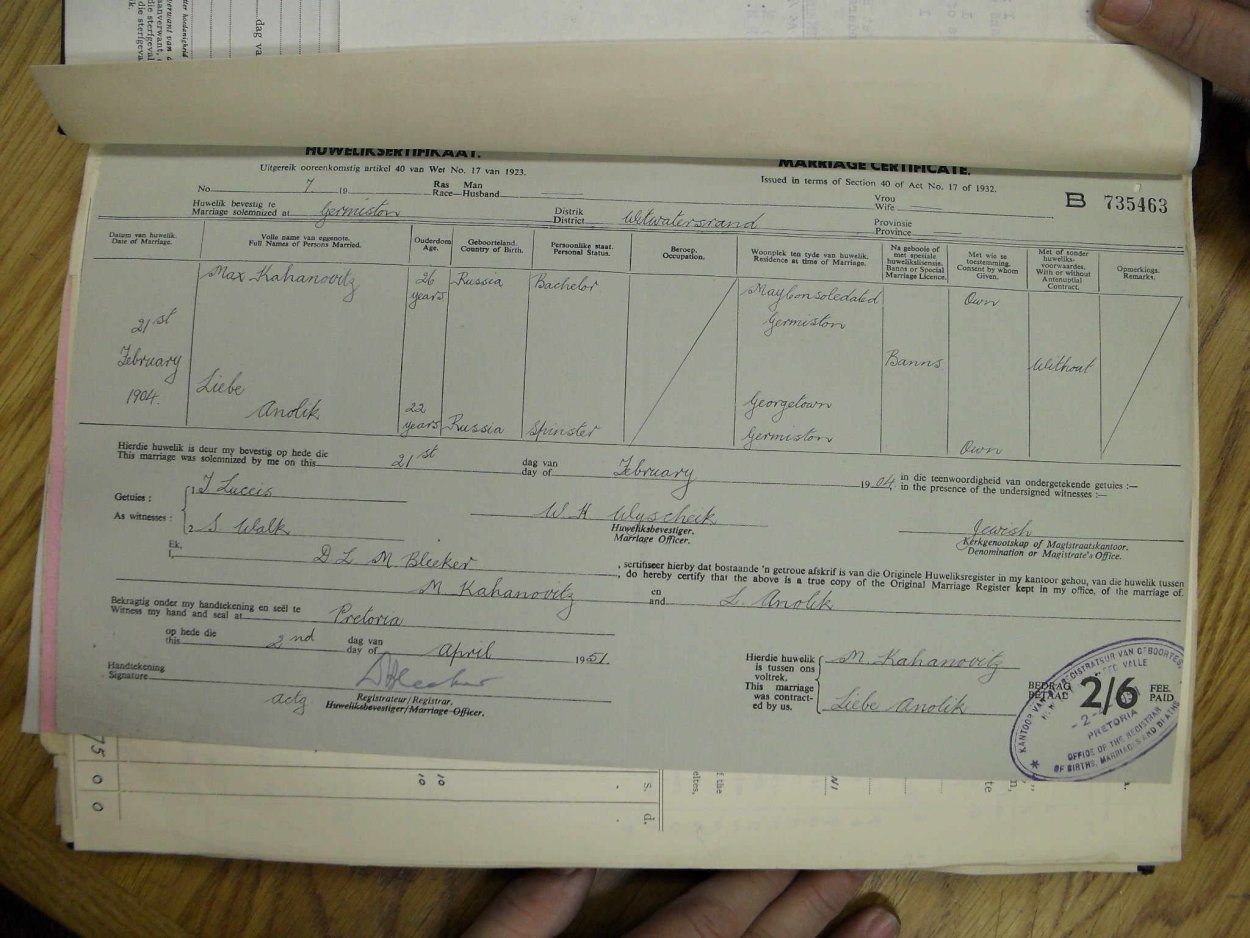 HUWELIKSERTIFIKAAT.
MARRIAGE CERTIFICATE.
Uitgereik ooreenkomstig artikel 40 van Wet No. 17 van 1923.
Issued in terms of Section 40 of Act No. 17 of 1932.
No. 7 19
Ras Man
Race—Husband
Vrou
Wife
B 735463
Huwelik bevestig te
Marriage solemnized at Germiston
Distrik
District Witwatersrand
Provinsie
Province
Datum van huwelik.
Date of Marriage.
Volle name van eggenote.
Full Names of Persons Married.
Ouderdom
Age.
Geboorteland.
Country of Birth.
Persoonlike staat.
Personal Status.
Beroep.
Occupation.
Woonplek ten tyde van huwelik.
Residence at time of Marriage.
Na gebooie of
met spesiale
huwelikslisensie.
Banns or Special
Marriage Licence.
Met wie se
toestemming.
Consent by whom
Given.
Met of sonder
huweliks-
voorwaardes.
With or without
Antenuptial
Contract.
Opmerkings.
Remarks.
21st
February
1904.
Max Kahanovitz
26
years
Russia
Bachelor
May Consoledated
Germiston
Own
Banns
Without
Liebe
Anolik
22
years
Russia
Spinster
Georgetown
Germiston
Own
Hierdie huwelik is deur my bevestig op hede die
This marriage was solemnized by me on this 21st
dag van
day of February 1904
in die teenwoordigheid van ondergetekende getuies :—
in the presence of the undersigned witnesses :—
Getuies :
As witnesses :
1. I Luccis
2 S. Walk
W. H Wuscheik
Huweliksbevestiger.
Marriage Officer.
Jewish
Kerkgenootskap of Magistraatskantoor.
Denomination or Magistrate's Office.
Ek,
I, D L M Bleeker
, sertifiseer hierby dat bostaande 'n getroue afskrif is van die Originele Huweliksregister in my kantoor gehou, van die huwelik tussen
, do hereby certify that the above is a true copy of the Original Marriage Register kept in my office, of the marriage of.
M Kahanovitz
en
and L. Anolik
Bekragtig onder my handtekening en seël te
Witness my hand and seal at Pretoria
op hede die
this 2nd
dag van
day of April 1951
Handtekening
Signature
actg
Registrateur/Registrar.
Huweliksbevestiger/Marriage Officer.
Hierdie huwelik
is tussen ons
voltrek.
This marriage
was contract-
ed by us.
M. Kahanovitz
Liebe Anolik
BEDRAG
BETAAL
2/6
FEE
PAID
PRETORIA
OFFICE OF THE REGISTRAR
OF BIRTHS, MARRIAGES AND DEATHS